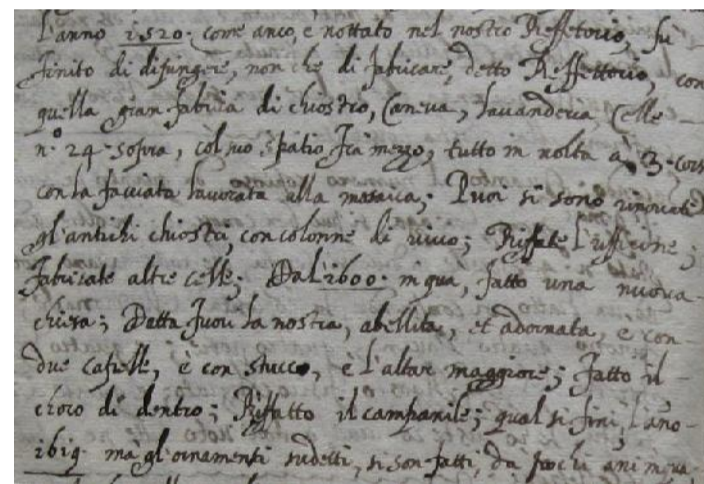 l'anno 1520. come anco, è nottato nel nostro Reffetorio, fù
finito di dipingere, non che di fabricare, detto Reffettorio, con
quella gran fabrica di chiostro, Caneva, lavanderia Celle
n.º 24. sopra, col suo spatio frà mezzo, tutto in volta a 3. cors
con la facciata lavorata alla mosaica; Puoi si sono rinovate
gl'antichi chiostri, con colonne di vivo; Riffate l'ufficine;
fabricate altre celle; Dal 1600. in qua, fatto una nuova
chiesa; Detta fuori la nostra, abellita, et adornata, e con
due capelle, è con stucco, è l'altar maggiore; fatto il
choro di dentro; Riffatto il campanile; qual si finì, l'ano
1619. ma gl'ornamenti sudetti, si son fatti, da pochi ani in qua.